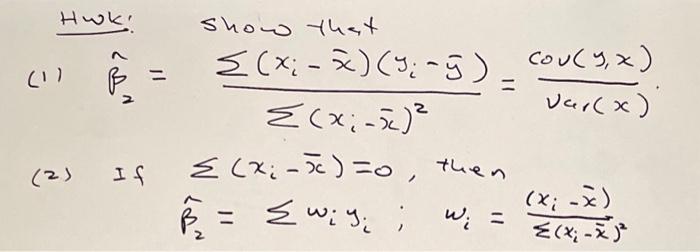 Hwk: show that
(1) β̂₂ = Σ(xᵢ - x̄)(yᵢ - ȳ) / Σ(xᵢ - x̄)² = cov(y,x) / Var(x).
(2) If Σ(xᵢ - x̄) = 0, then
β̂₂ = Σ wᵢyᵢ ; wᵢ = (xᵢ - x̄) / Σ(xᵢ - x̄)²